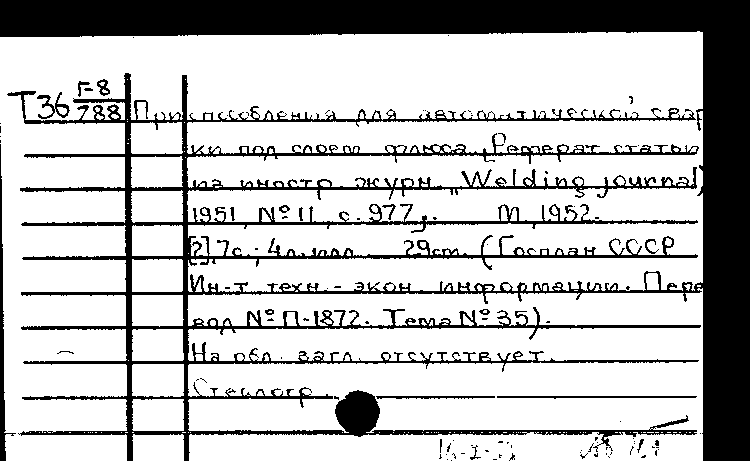 Г-8
Т36 788 Приспособления для автоматической свар
ки под слоем флюса. Реферат статьи
из иностр. журн. „Welding journal,
1951, № 11, с. 977,. М, 1952.
[2], 7с.; 4л. илл. 29см. (Госплан СССР
Ин-т техн.-экон. информации. Пере
вод № П-1872. Тема № 35).
На обл. загл. отсутствует.
Стеклогр.